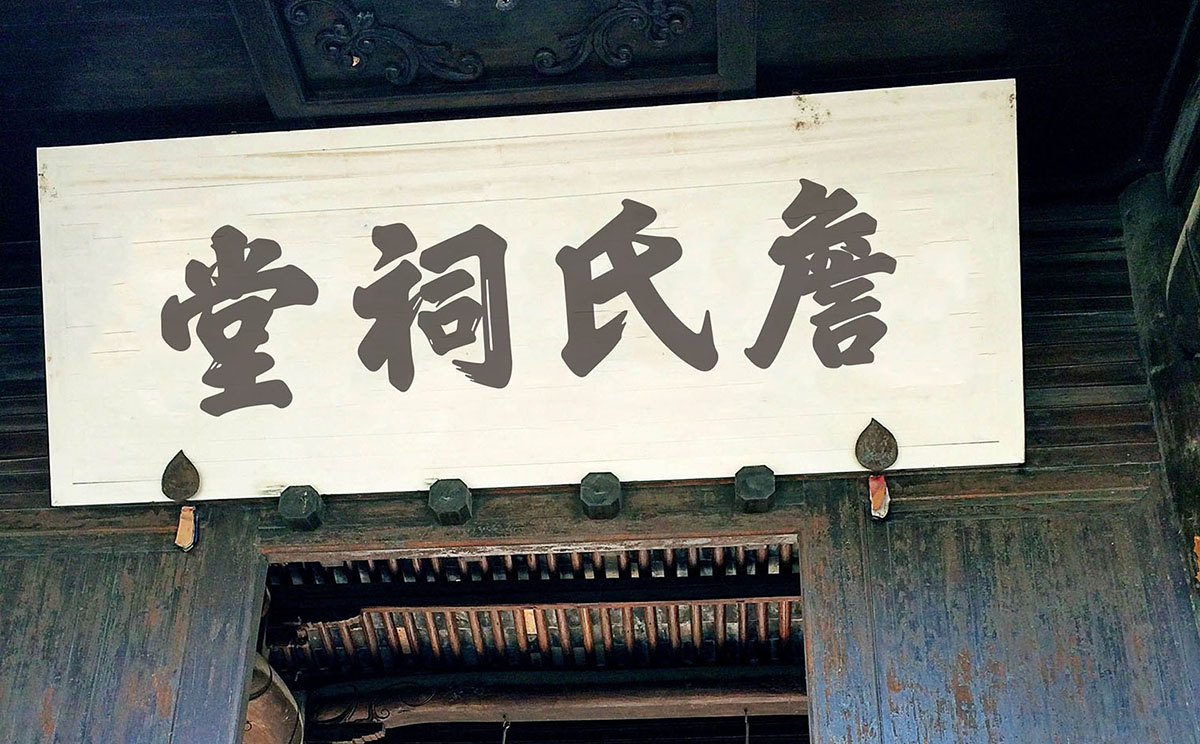 詹氏祠堂